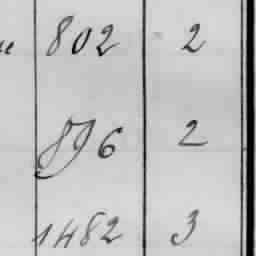 802 2
896 2
1482 3